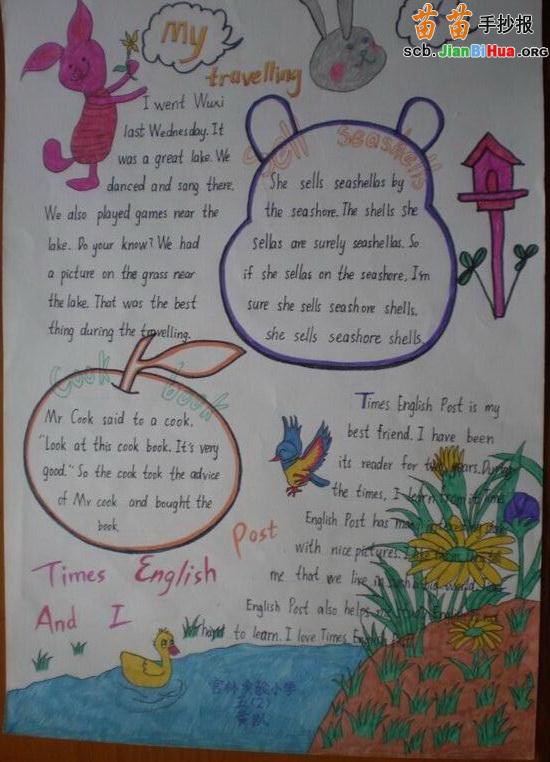 苗苗手抄报
scb.JianBiHua.org
My
travelling
I went Wuxi
last Wednesday. It
was a great lake. We
danced and sang there.
We also played games near the
lake. Do your know? We had
a picture on the grass near
the lake. That was the best
thing during the travelling.
Sell seashells
She sells seashellas by
the seashore. The shells she
sellas are surely seashellas. So
if she sellas on the seashore, I'm
sure she sells seashore shells.
she sells seashore shells.
Cook book
Mr Cook said to a cook.
"Look at this cook book. It's very
good." So the cook took the advice
of Mr cook and bought the
book.
Times English Post
And I
Times English Post is my
best friend. I have been
its reader for two years. During
the times, I learn from it. Times
English Post has many
with nice pictures. I
me that we live in such a big world.
English Post also helps me
hard to learn. I love Times English Post.
宫林实验小学
五(2)